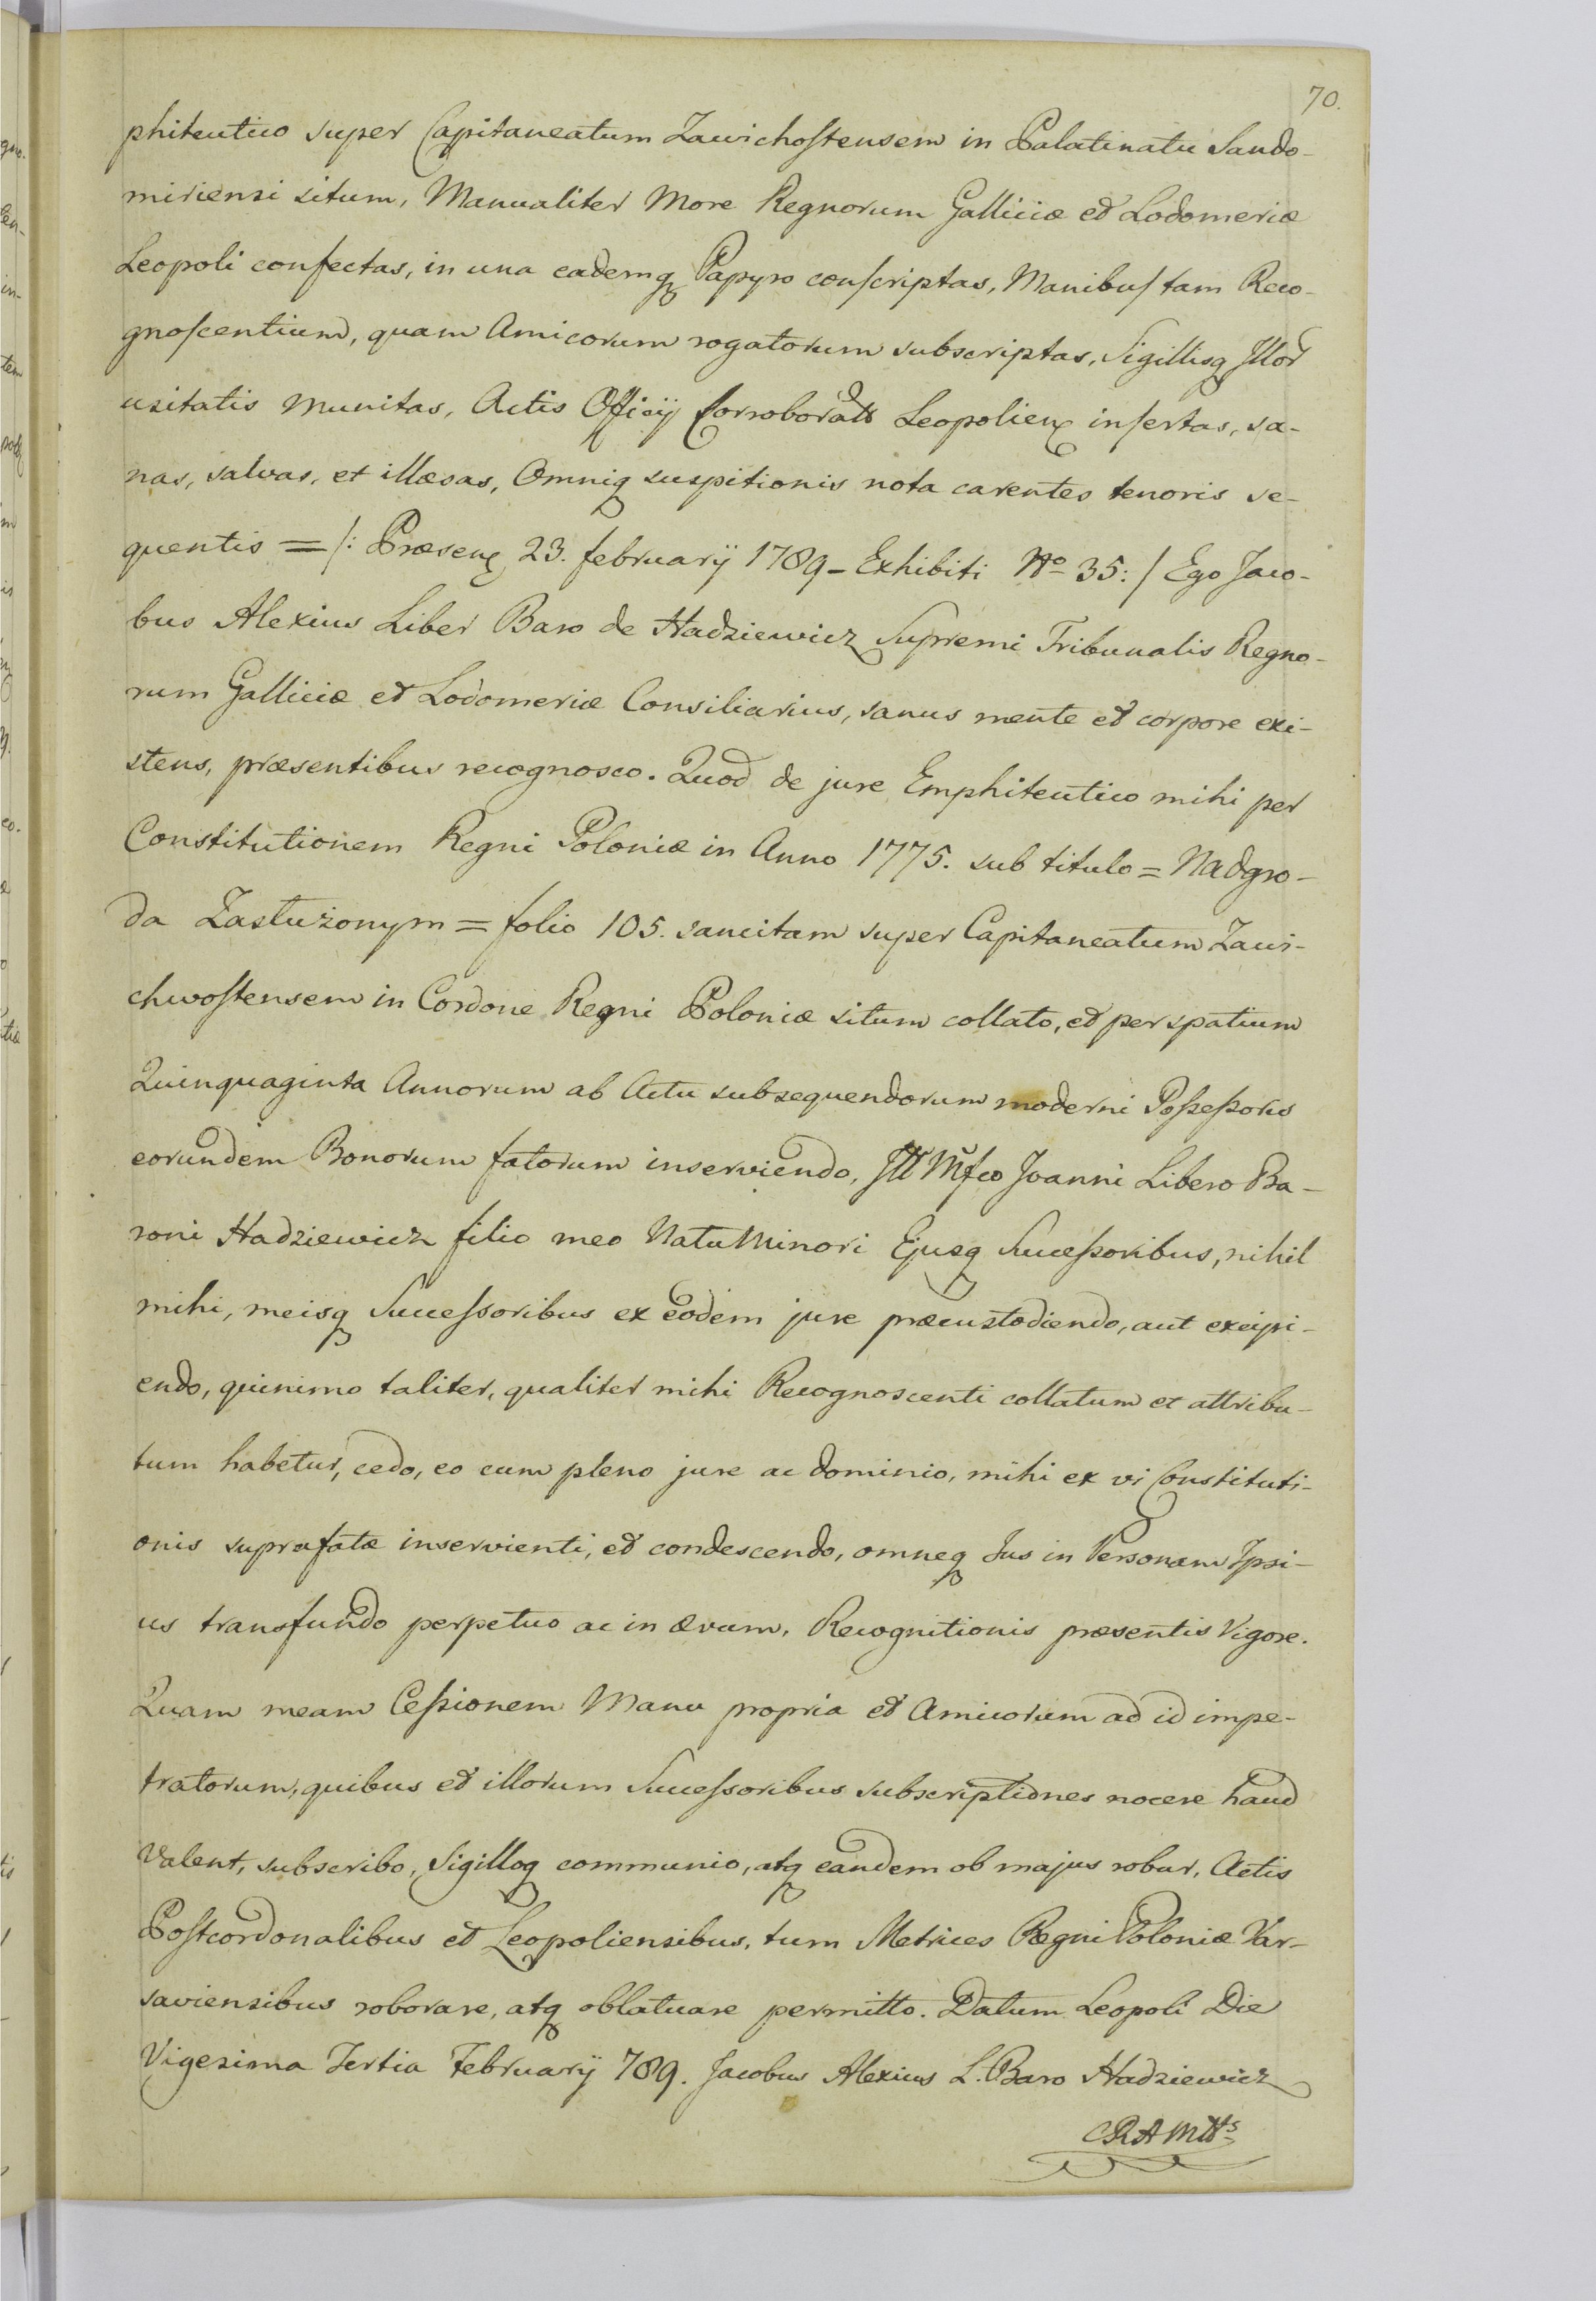 70.
phiteutico super Capitaneatum Zawichostensem in Palatinatu Sando-
miriensi situm, Manualiter More Regnorum Galliciæ et Lodomeriæ
Leopoli confectas, in una eademq Papyro conscriptas, Manibus tam Reco-
gnoscentium, quam Amicorum rogatorum subscriptas, Sigillisq Illor
usitatis munitas, Actis Officij Corroborats Leopolien insertas, sa-
nas, salvas, et illæsas, Omniq suspitionis nota carentes tenoris se-
quentis = /: Præsen 23. februarij 1789 - Exhibiti No 35: / Ego Jaco-
bus Alexius Liber Baro de Hadziewicz Supremi Tribunalis Regno-
rum Galliciæ et Lodomeriæ Consiliarius, sanus mente et corpore exi-
stens, præsentibus recognosco. Quod de jure Emphiteutico mihi per
Constitutionem Regni Poloniæ in Anno 1775. sub titulo = Nadgro-
da Zasłużonym = folio 105. sancitam super Capitaneatum Zawi-
chwostensem in Cordone Regni Poloniæ situm collato, et per spatium
Quinquaginta Annorum ab Actu subsequendorum moderni Possessoris
eorundem Bonorum fatorum inserviendo, Ill Mfco Joanni Libero Ba-
roni Hadziewicz filio meo Natu Minori Ejusq Successoribus, nihil
mihi, meisq Successoribus ex eodem jure præcustodiendo, aut excipi-
endo, quinimo taliter, qualiter mihi Recognoscenti collatum et attribu-
tum habetur, cedo, eo cum pleno jure ac dominio, mihi ex vi Constituti-
onis suprafatæ inservienti, et condescendo, omneq Jus in Personam Ipsi-
us transfundo perpetuo ac in ævum, Recognitionis præsentis Vigore.
Quam meam Cessionem Manu propria et Amicorum ad id impe-
tratorum, quibus et illorum Successoribus subscriptiones nocere haud
Valent, subscribo, Sigilloq communio, atq eandem ob majus robur, Actis
Postcordonalibus et Leopoliensibus, tum Metrices Regni Poloniæ Var-
saviensibus roborare, atq oblatuare permitto. Datum Leopoli Die
Vigesima Tertia Februarij 789. Jacobus Alexius L. Baro Hadziewicz